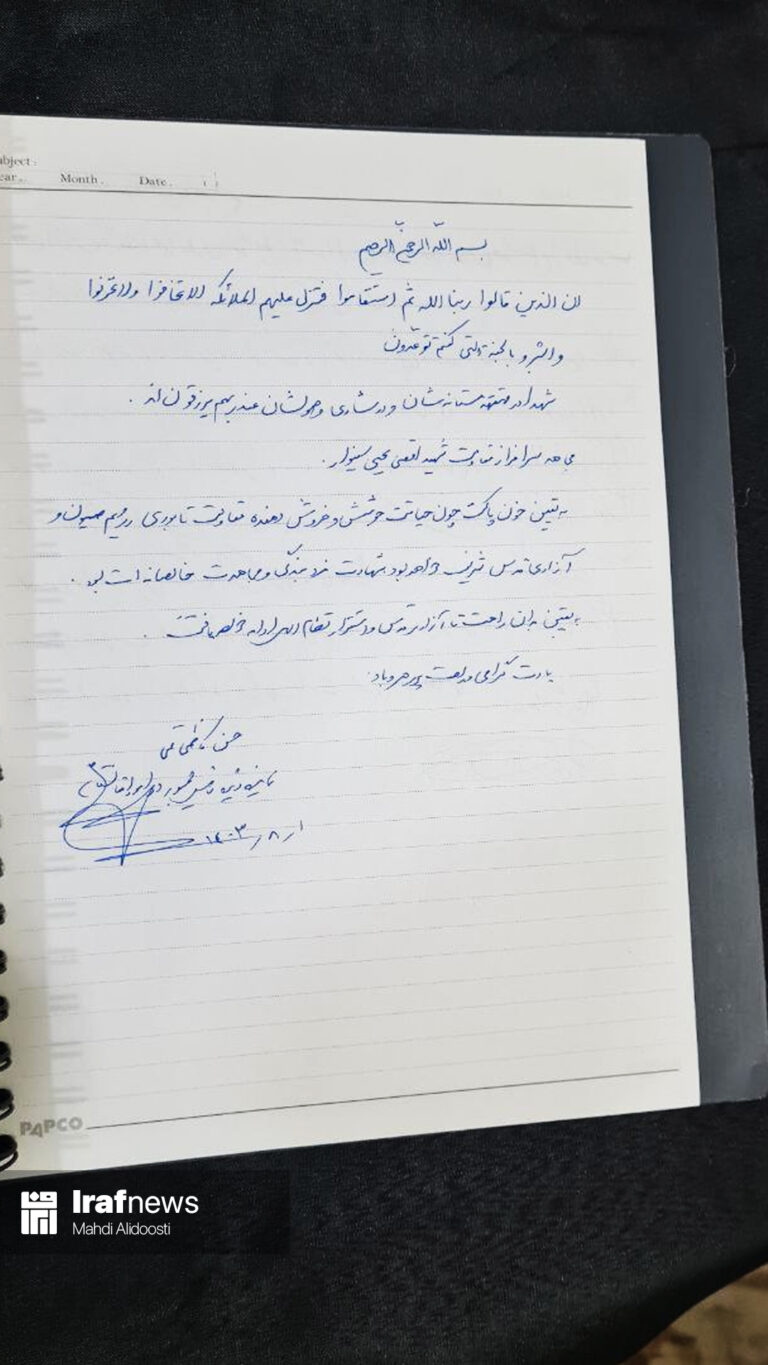 ubject:
ear. Month. Date. ( )
بسم الله الرحمن الرحیم
ان الذین قالوا ربنا الله ثم استقاموا فتنزل علیهم الملائکه الا تخافوا ولا تحزنوا
و ابشرو بالجنة التی کنتم توعدون
شهدا در قهقهه مستانه‌شان و در شادی وصولشان عند ربهم یرزقون‌اند .
سرافراز مقاومت شهید یحیی سینوار .
به یقین خون پاکت چون حیاتت جوشش و خروش دهنده مقاومت تا نابودی رژیم صهیون و
آزادی قدس شریف خواهد بود شهادت مزد بندگی و مجاهدت خالصانه است بود .
به یقین بدان راهت تا آزادی قدس و استقرار نظام الهی ادامه خواهد یافت .
یادت گرامی و راهت پر رهرو باد .
حسن کاظمی قمی
نماینده ویژه رئیس جمهور در امور افغانستان
۱۴۰۳/۸/۱
PAPCO
Irafnews
Mahdi Alidoosti